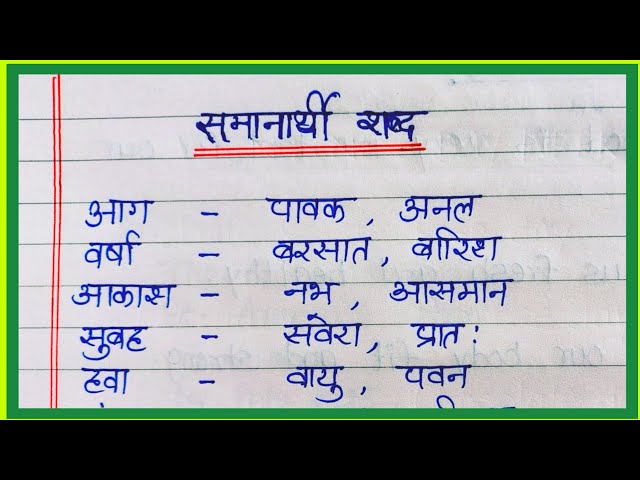 समानार्थी शब्द
आग - पावक, अनल
वर्षा - बरसात, बारिश
आकाश - नभ, आसमान
सुबह - सवेरा, प्रातः
हवा - वायु, पवन